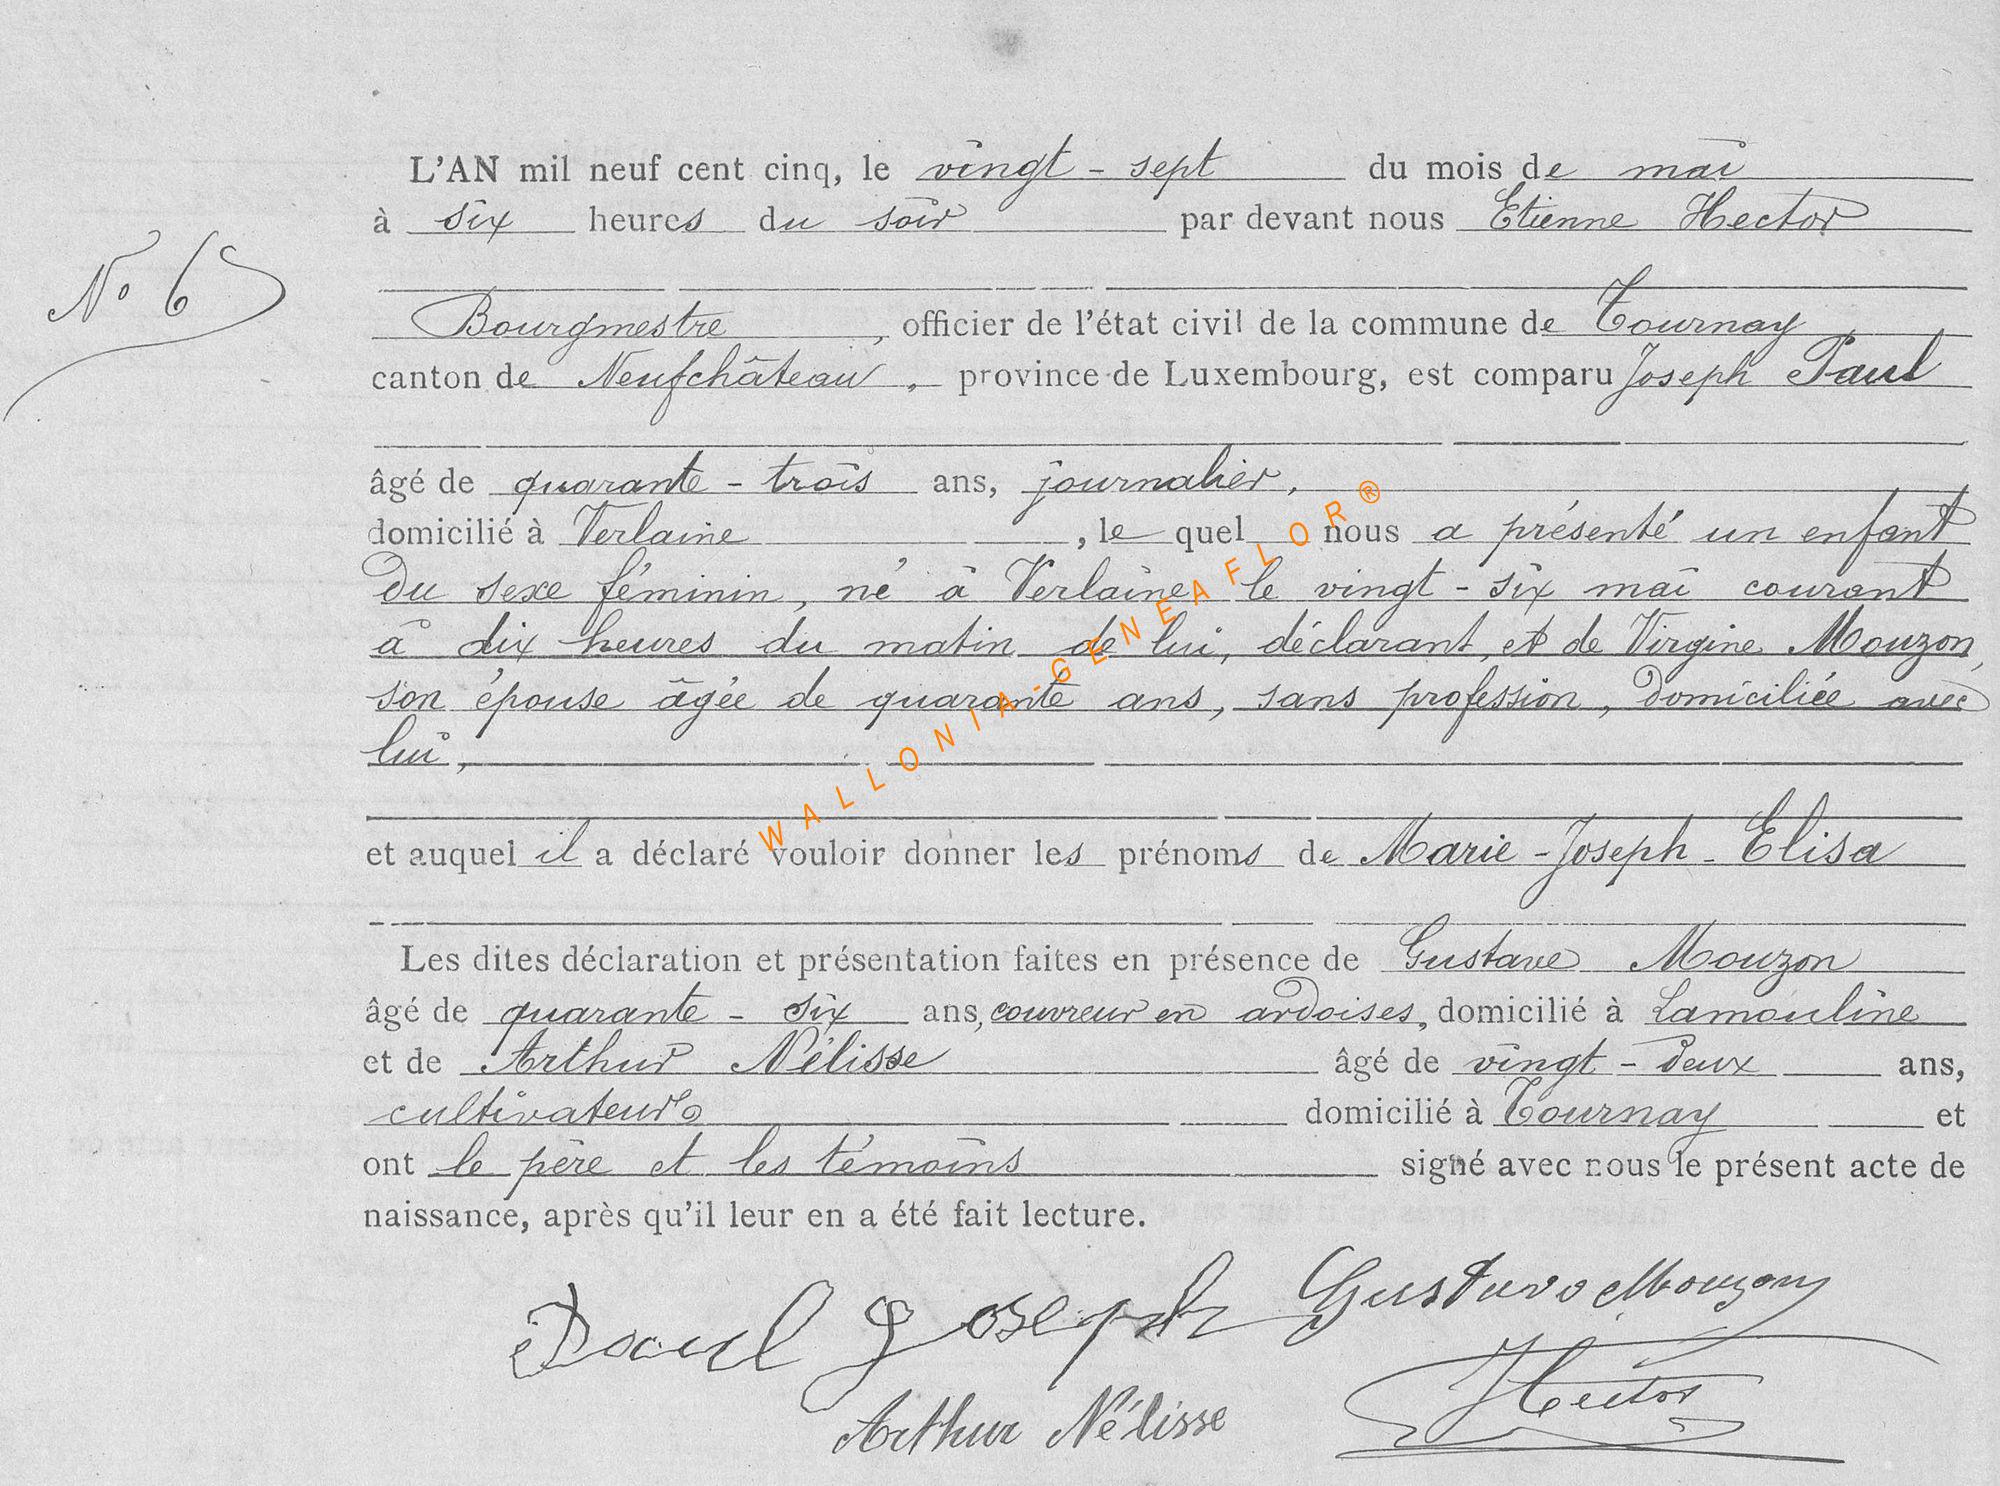 L'AN mil neuf cent cinq, le vingt - sept du mois de mai
à six heures du soir par devant nous Etienne Hector
No 6
Bourgmestre, officier de l'état civil de la commune de Tournay
canton de Neufchâteau, province de Luxembourg, est comparu Joseph Paul
âgé de quarante - trois ans, journalier,
domicilié à Verlaine, le quel nous a présenté un enfant
du sexe féminin, né à Verlaine le vingt - six mai courant
à dix heures du matin de lui, déclarant, et de Virgine Mouzon,
son épouse âgée de quarante ans, sans profession, domiciliée avec
lui,
WALLONIA-GENEAFLOR®
et auquel il a déclaré vouloir donner les prénoms de Marie - Joseph - Elisa
Les dites déclaration et présentation faites en présence de Gustave Mouzon
âgé de quarante - six ans, couvreur en ardoises, domicilié à Lamouline
et de Arthur Nélisse âgé de vingt - deux ans,
cultivateur domicilié à Tournay et
ont le père et les témoins signé avec nous le présent acte de
naissance, après qu'il leur en a été fait lecture.
Paul Joseph Gustave Mouzon
Arthur Nélisse Hector